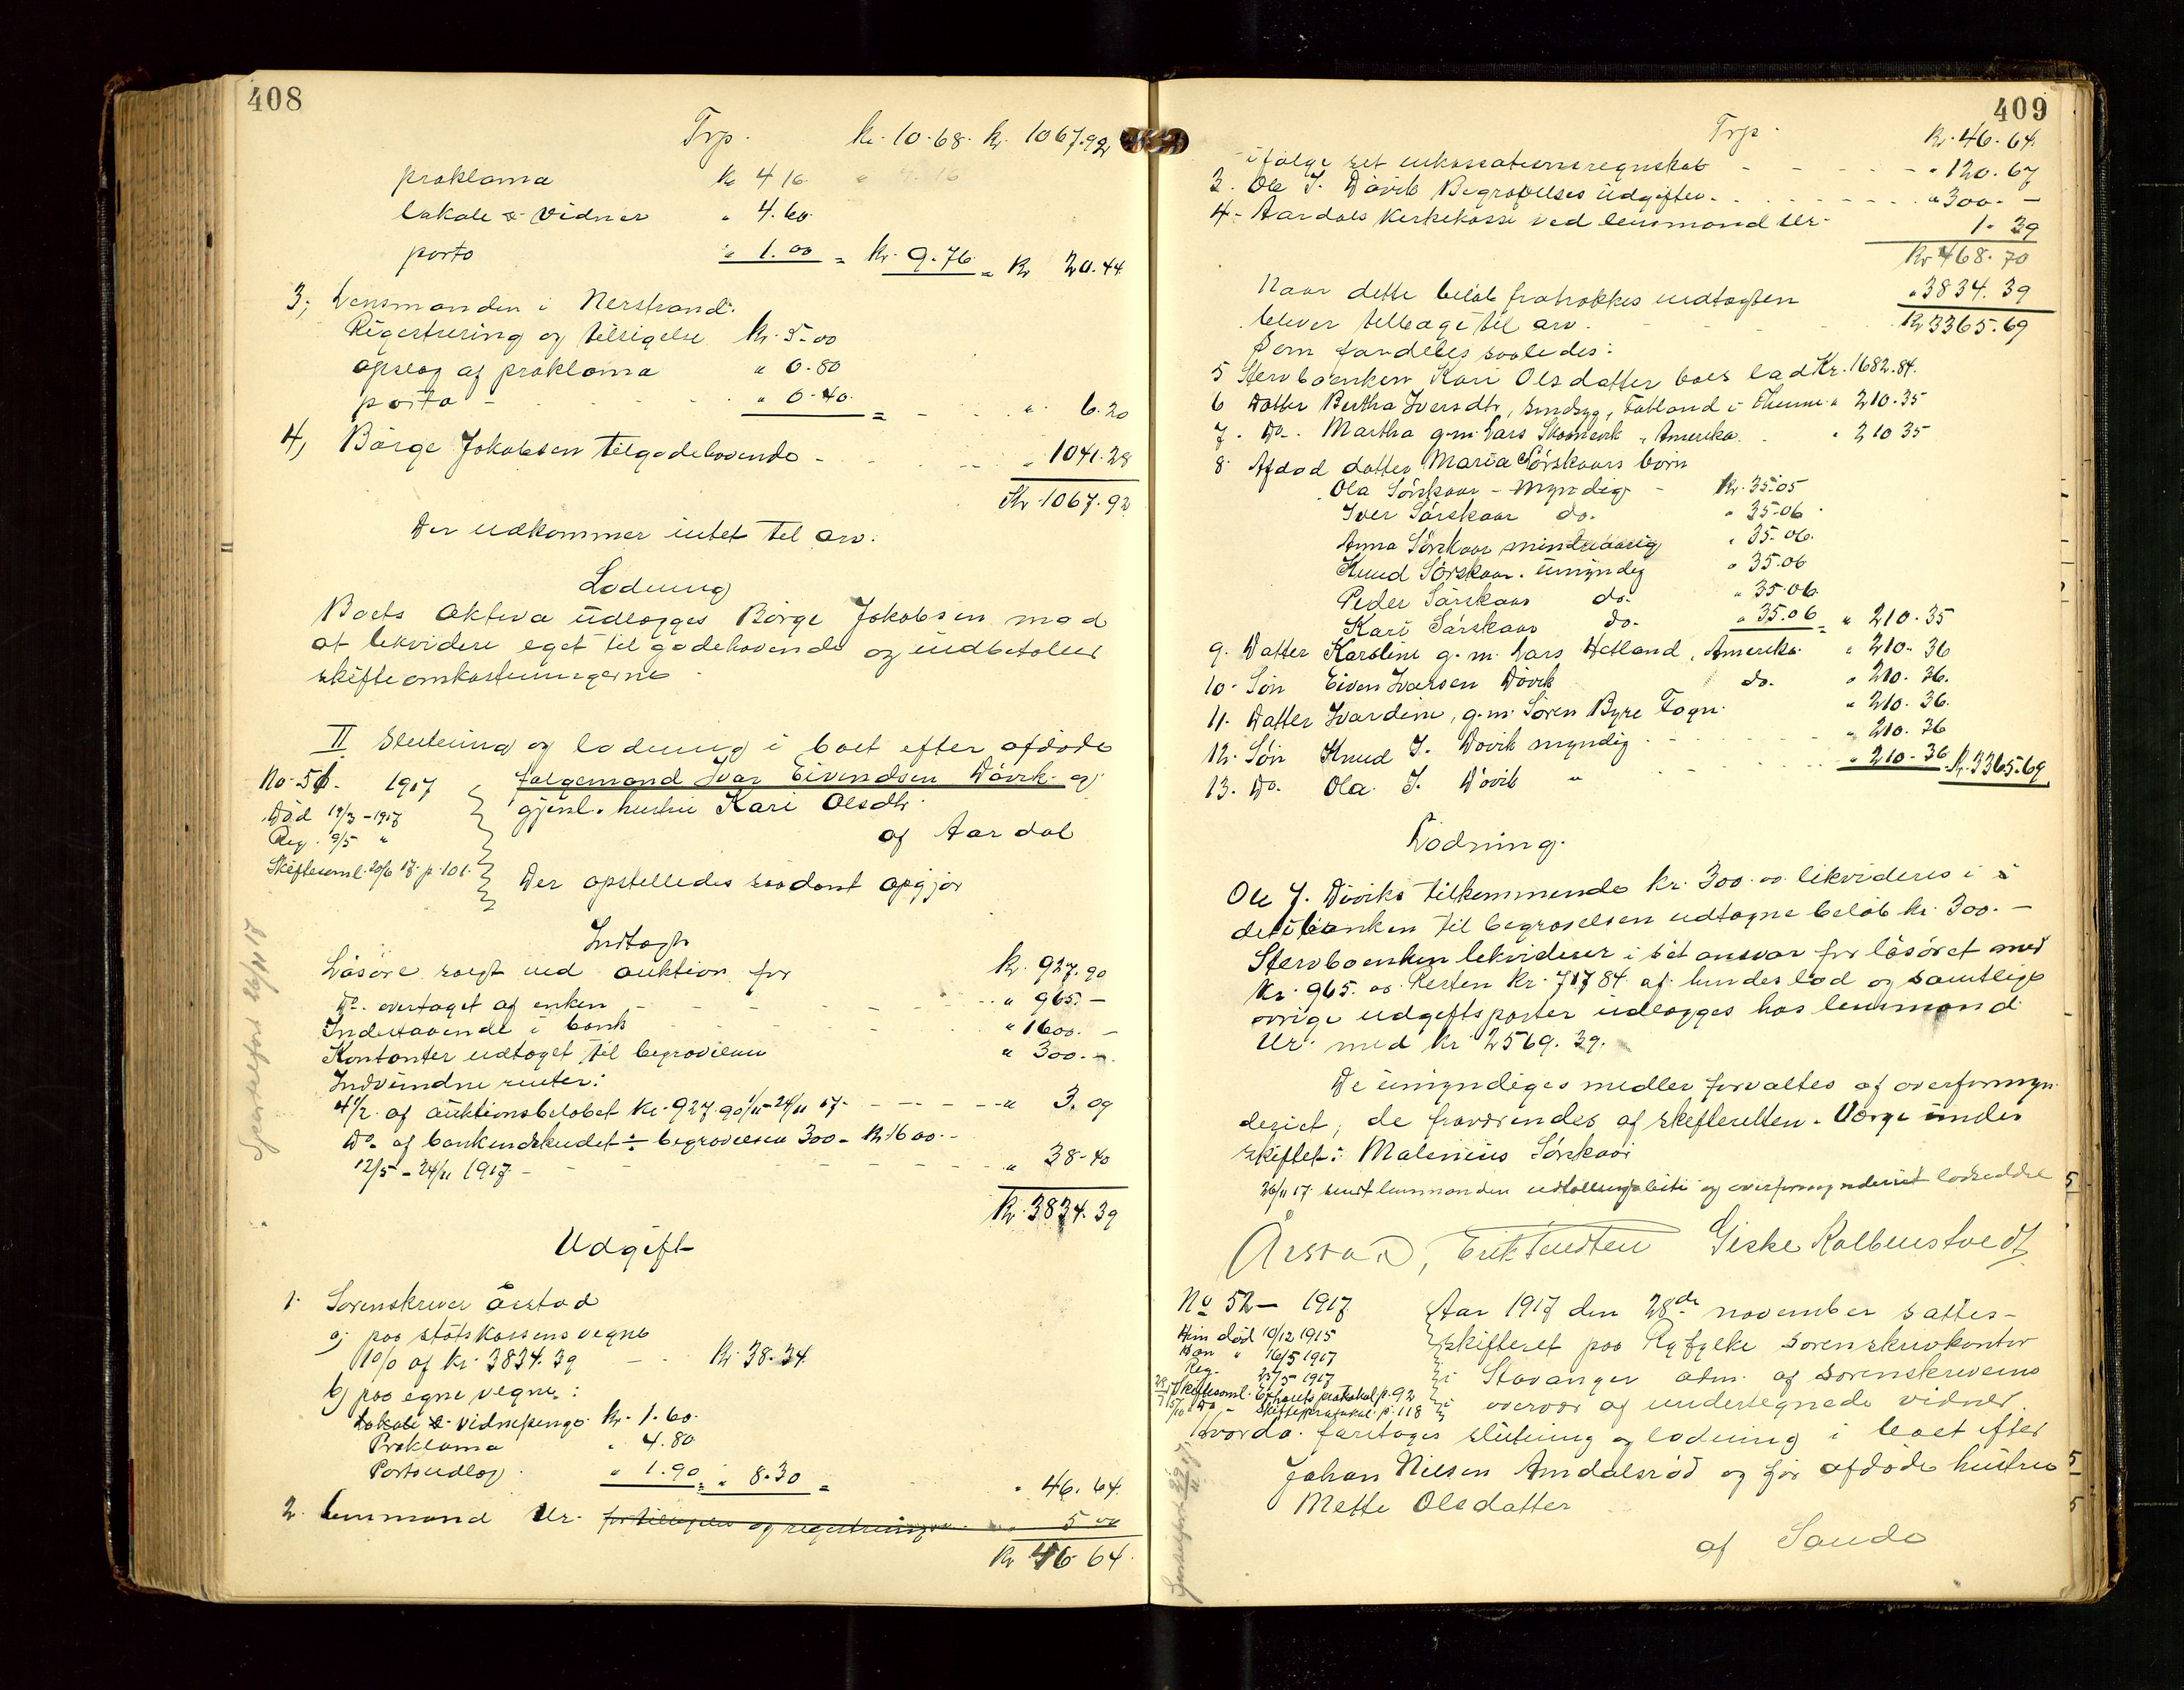 408
Trp. kr. 10.68. kr. 1067.92
proklama kr 4 16
lokale & vidner " 4.60.
porto " 1.00 = kr. 9.76 = Kr 20.44
3, Lensmanden i Nerstrand:
Registrering og tilsigelse kr. 5.00
opslag af proklama " 0.80
porto - " 0.40. = - " 6.20
4, Børge Jakobsen tilgodehavende - " 1041.28
Kr. 1067.92
Der udkommer intet til arv.
Lodning
Boets aktiva udlægges Børge Jakobsen mod
at likvidere eget tilgodehavende og indbetaler
skifteomkostningerne
II Slutning og lodning i boet efter afdøde
No. 51. 1917 følgemand Ivar Eivendsen Døvik og
Død 12/3-1917 gjenl. hustru Kari Olsdtr.
Reg. 9/5 " af Aardal
Skiftesaml. 20/6 17. p. 101. Der opstilledes saadant opgjør
Indtægt
Løsøre solgt ved auktion for kr. 927.90
Do. overtaget af enken " 965.-
Indestaaende i bank " 1600.-
Kontanter udtaget til begravelsen " 300.-
Indvundne renter:
4½ af auktionsbeløbet kr. 927.90 1/11-24/11 17. " 3.09
Do. af bankindskudet ÷ begravelsen 300 = kr. 1600.-
12/5-24/11 1917 - " 38-40
Kr. 3834.39
Udgift
1. Sorenskriver Årstad
a, paa statskassens vegne
1% af kr. 3834.39 - kr. 38.34
b, paa egne vegne:
Lokale & vidnepenge kr. 1.60.
Proklama " 4.80
Portoudlæg " 1.90 = " 8.30 = " 46.64.
2. Lensmand Ur. for tilsigelse og registreringen 5 00
Kr 46 64.
Sportelført 26/11 17
409
Trp. kr. 46.64
ifølge sit inkassationsregnskab - " 120.67
3. Ole I. Døvik Begravelses udgifter. " 300.-
4. Aardals Kirkekasse ved lensmand Ur. 1.39
Kr 468.70
Naar dette beløb fratrækkes indtægten " 3834.39
bliver tilbage til arv. Kr 3365.69
Som fordeles saaledes:
5 Stervboenken Kari Olsdatter boes lod Kr. 1682.84.
6 Datter Bertha Iversdtr, sindsyg, Fatland i " 210.35
7. Do. Martha g.m. Lars Skaanevik, Amerika. " 210 35
8. Afdød datter Maria Sørskaars børn
Ola Sørskaar - myndig - kr. 35.05
Iver Sørskaar do. " 35.06
Anna Sørskaar mindreaarig " 35.06.
Knud Sørskaar. umyndig " 35.06
Peder Sørskaar do. " 35.06.
Kari Sørskaar do. " 35.06 = " 210.35
9. Datter Karoline g.m. Lars Hetland, Amerika " 210.36
10. Søn Eiven Ivarsen Døvik do. " 210.36.
11. Datter Ivardine, g.m. Søren Byre Fogn. " 210.36.
12. Søn Knud I. Døvik myndig " 210.36
13. Do. Ola I. Døvik " " 210.36 Kr. 3365.69
Lodning.
Ole I. Døviks tilkommende kr. 300.00 likvideres i
det i banken til begravelsen udtagne beløb kr. 300.-
Stervboenken likviderer i sit ansvar for løsøret med
kr. 965.00. Resten kr. 717 84 af hendes lod og samtlige
øvrige udgiftsposter udlægges hos lensmand
Ur. med kr 2569.39.
De umyndiges midler forvaltes af overformyn
deriet, de fraværendes af skifteretten. Værge under
skiftet: Malenius Sørskaar
26/11 17. sendt lensmanden udlodningsliste og overformynderiet lodseddel
Årstad, Erik Tendten Giske Kolbenstvedt
No 52 - 1917 Aar 1917 den 28de november sattes
Hun død 10/12 1915 skifteret paa Ryfylke sorenskriverkontor
Han " 16/5 1917 i Stavanger adm. af sorenskriveren
Reg. 25/5 1917 i overvær af undertegnede vidner.
Skiftesaml. Extraretsprotokol p. 92
Do - Skifteprotokol p. 118
Hvorda foretoges slutning og lodning i boet efter
Johan Nilsen Amdalsrød og før afdøde hustru
Mette Olsdatter
af Saude